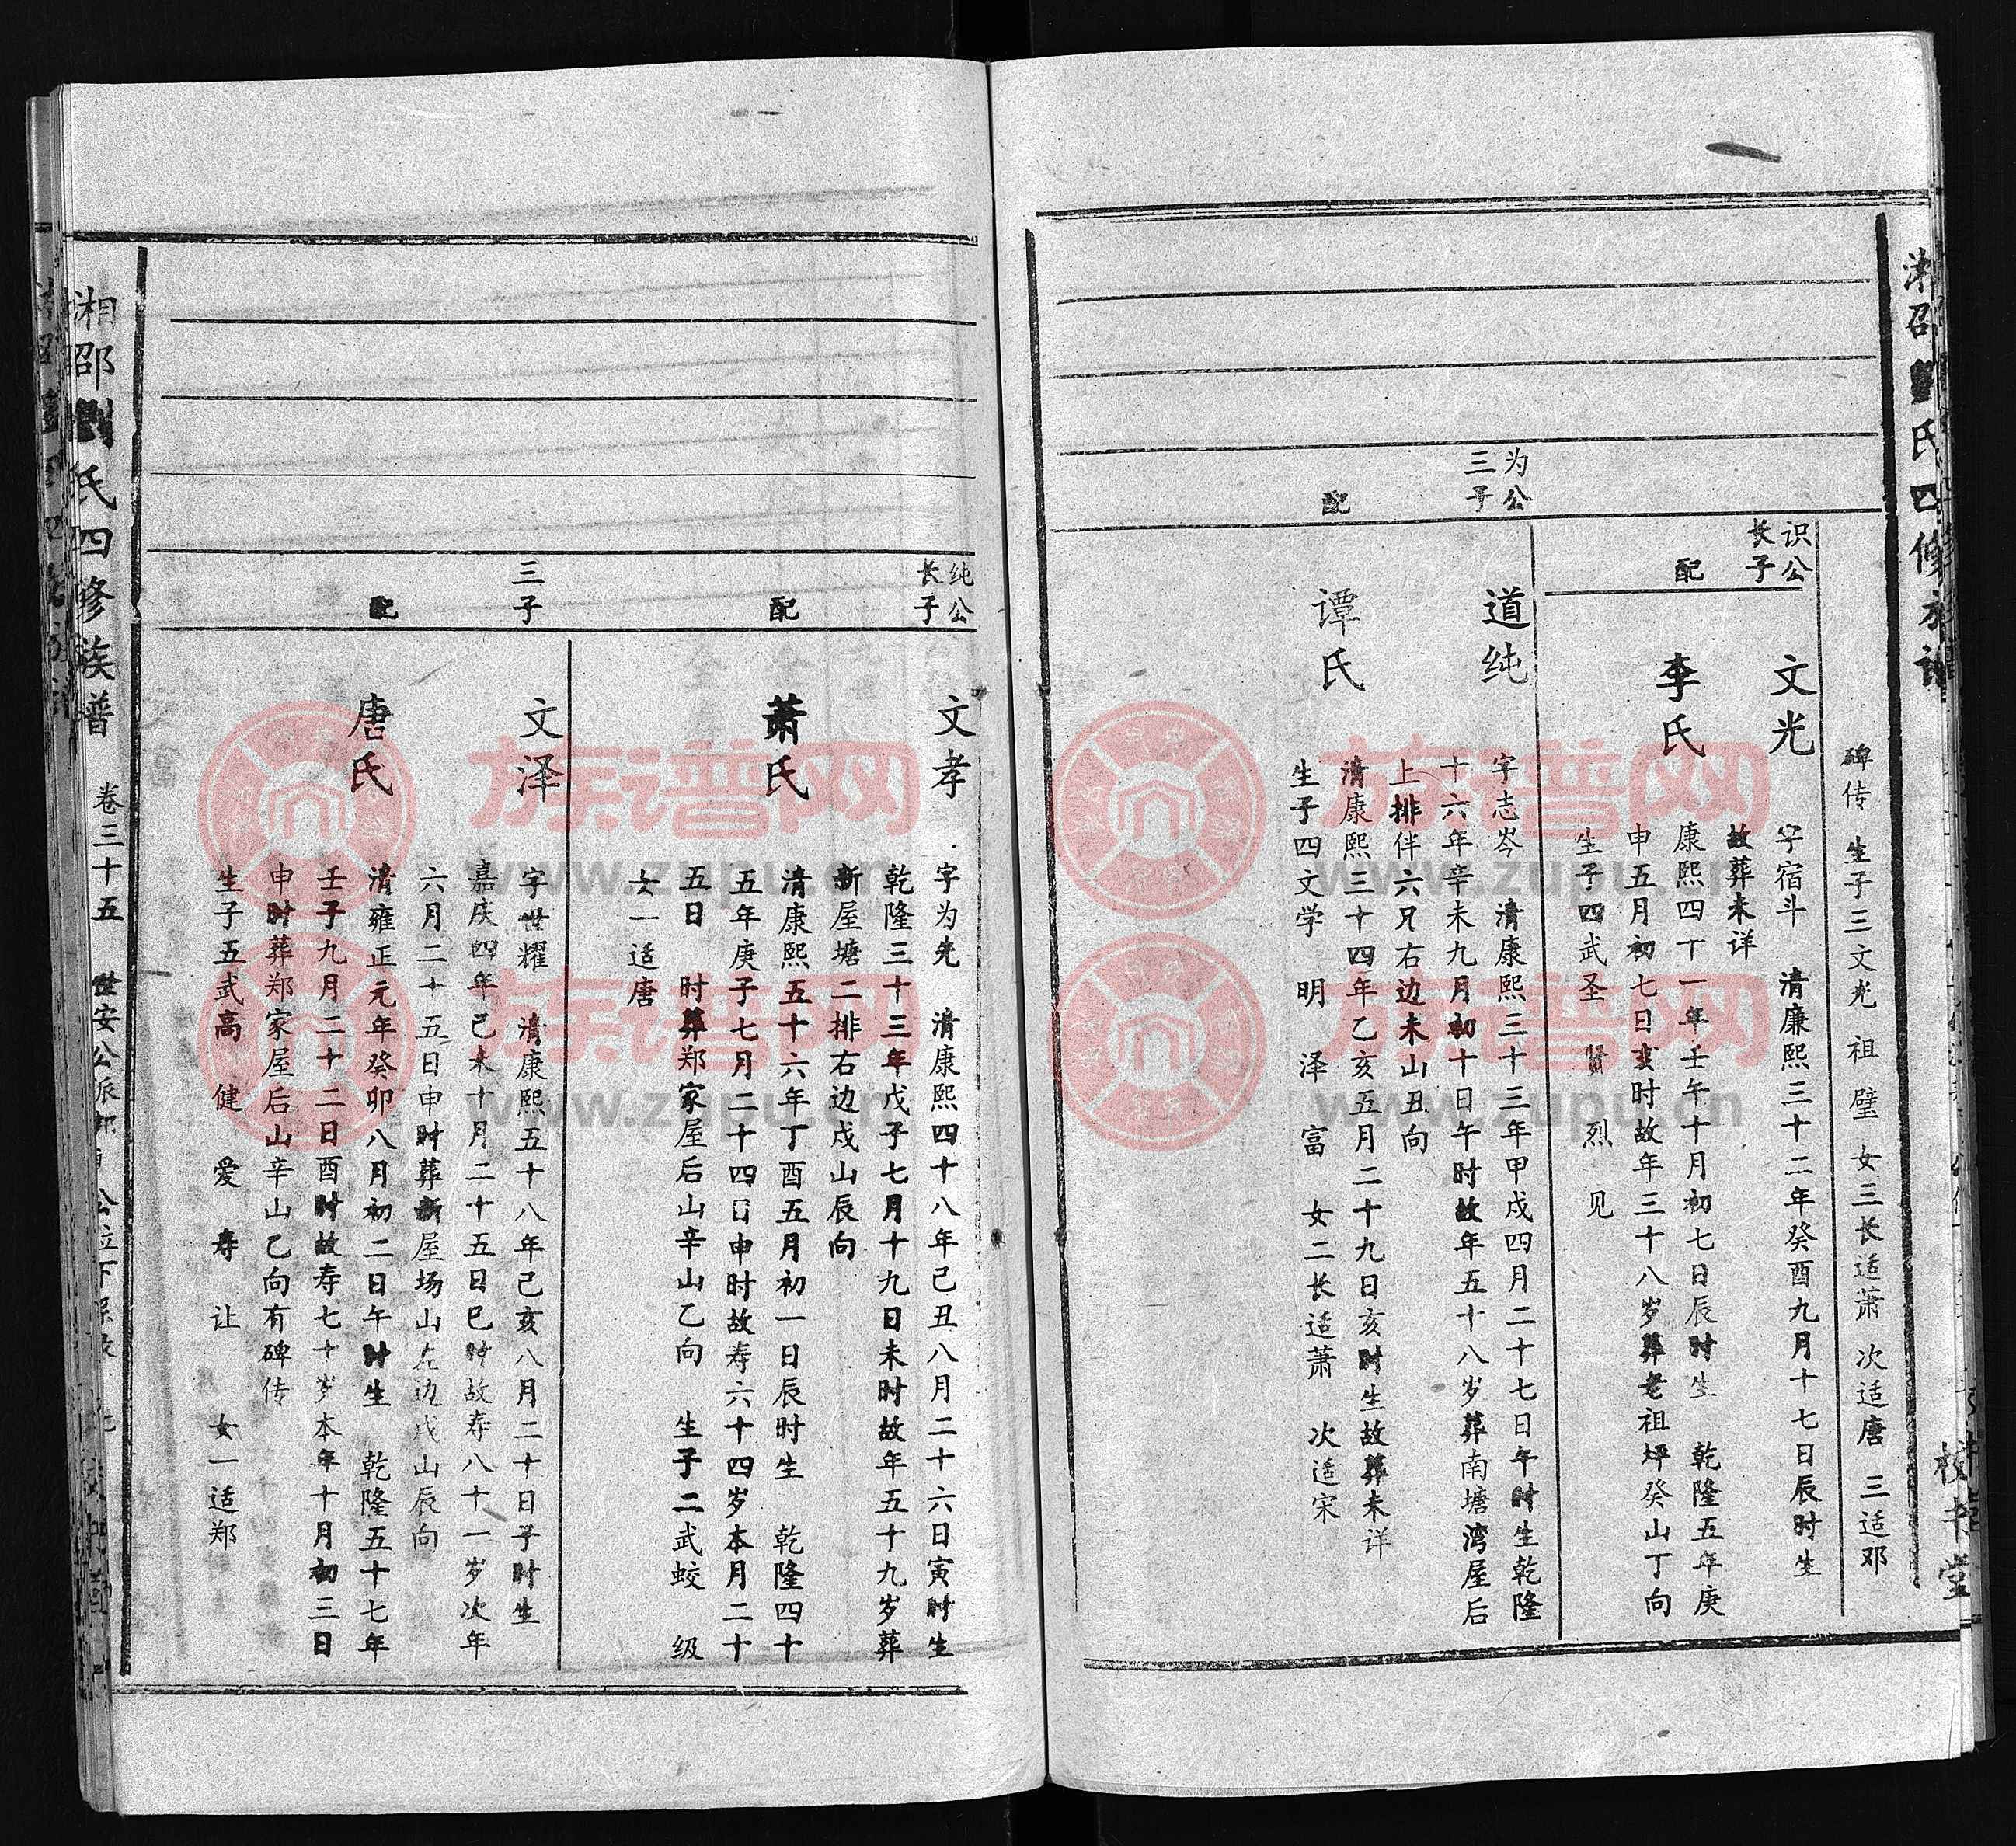 碑传 生子三文光 祖 璧 女三长适萧 次适唐 三适邓
识公
长子
文光
字宿斗 清康熙三十二年癸酉九月十七日辰时生
故葬未详
配
李氏
康熙四十一年壬午十月初七日辰时生 乾隆五年庚
申五月初七日亥时故年三十八岁葬老祖坪癸山丁向
生子四武圣 贤 烈 见
为公
三子
道纯
字志岑 清康熙三十三年甲戌四月二十七日午时生乾隆
十六年辛未九月初十日午时故年五十八岁葬南塘湾屋后
上排伴六兄右边未山丑向
配
谭氏
清康熙三十四年乙亥五月二十九日亥时生故葬未详
生子四文学 明 泽 富 女二长适萧 次适宋
纯公
长子
文孝
字为先 清康熙四十八年己丑八月二十六日寅时生
乾隆三十三年戊子七月十九日未时故年五十九岁葬
新屋塘二排右边戌山辰向
配
萧氏
清康熙五十六年丁酉五月初一日辰时生 乾隆四十
五年庚子七月二十四日申时故寿六十四岁本月二十
五日 时葬郑家屋后山辛山乙向 生子二武蛟 级
女一适唐
三子
文泽
字世耀 清康熙五十八年己亥八月二十日子时生
嘉庆四年己未十月二十五日巳时故寿八十一岁次年
六月二十五日申时葬新屋场山左边戌山辰向
配
唐氏
清雍正元年癸卯八月初二日午时生 乾隆五十七年
壬子九月二十二日酉时故寿七十岁本年十月初三日
申时葬郑家屋后山辛山乙向有碑传
生子五武高 健 爱 寿 让 女一适郑
湘邵劉氏四修族普 卷三十五 世安公派
族谱网
www.zupu.cn
族谱网
www.zupu.cn
族谱网
www.zupu.cn
族谱网
www.zupu.cn